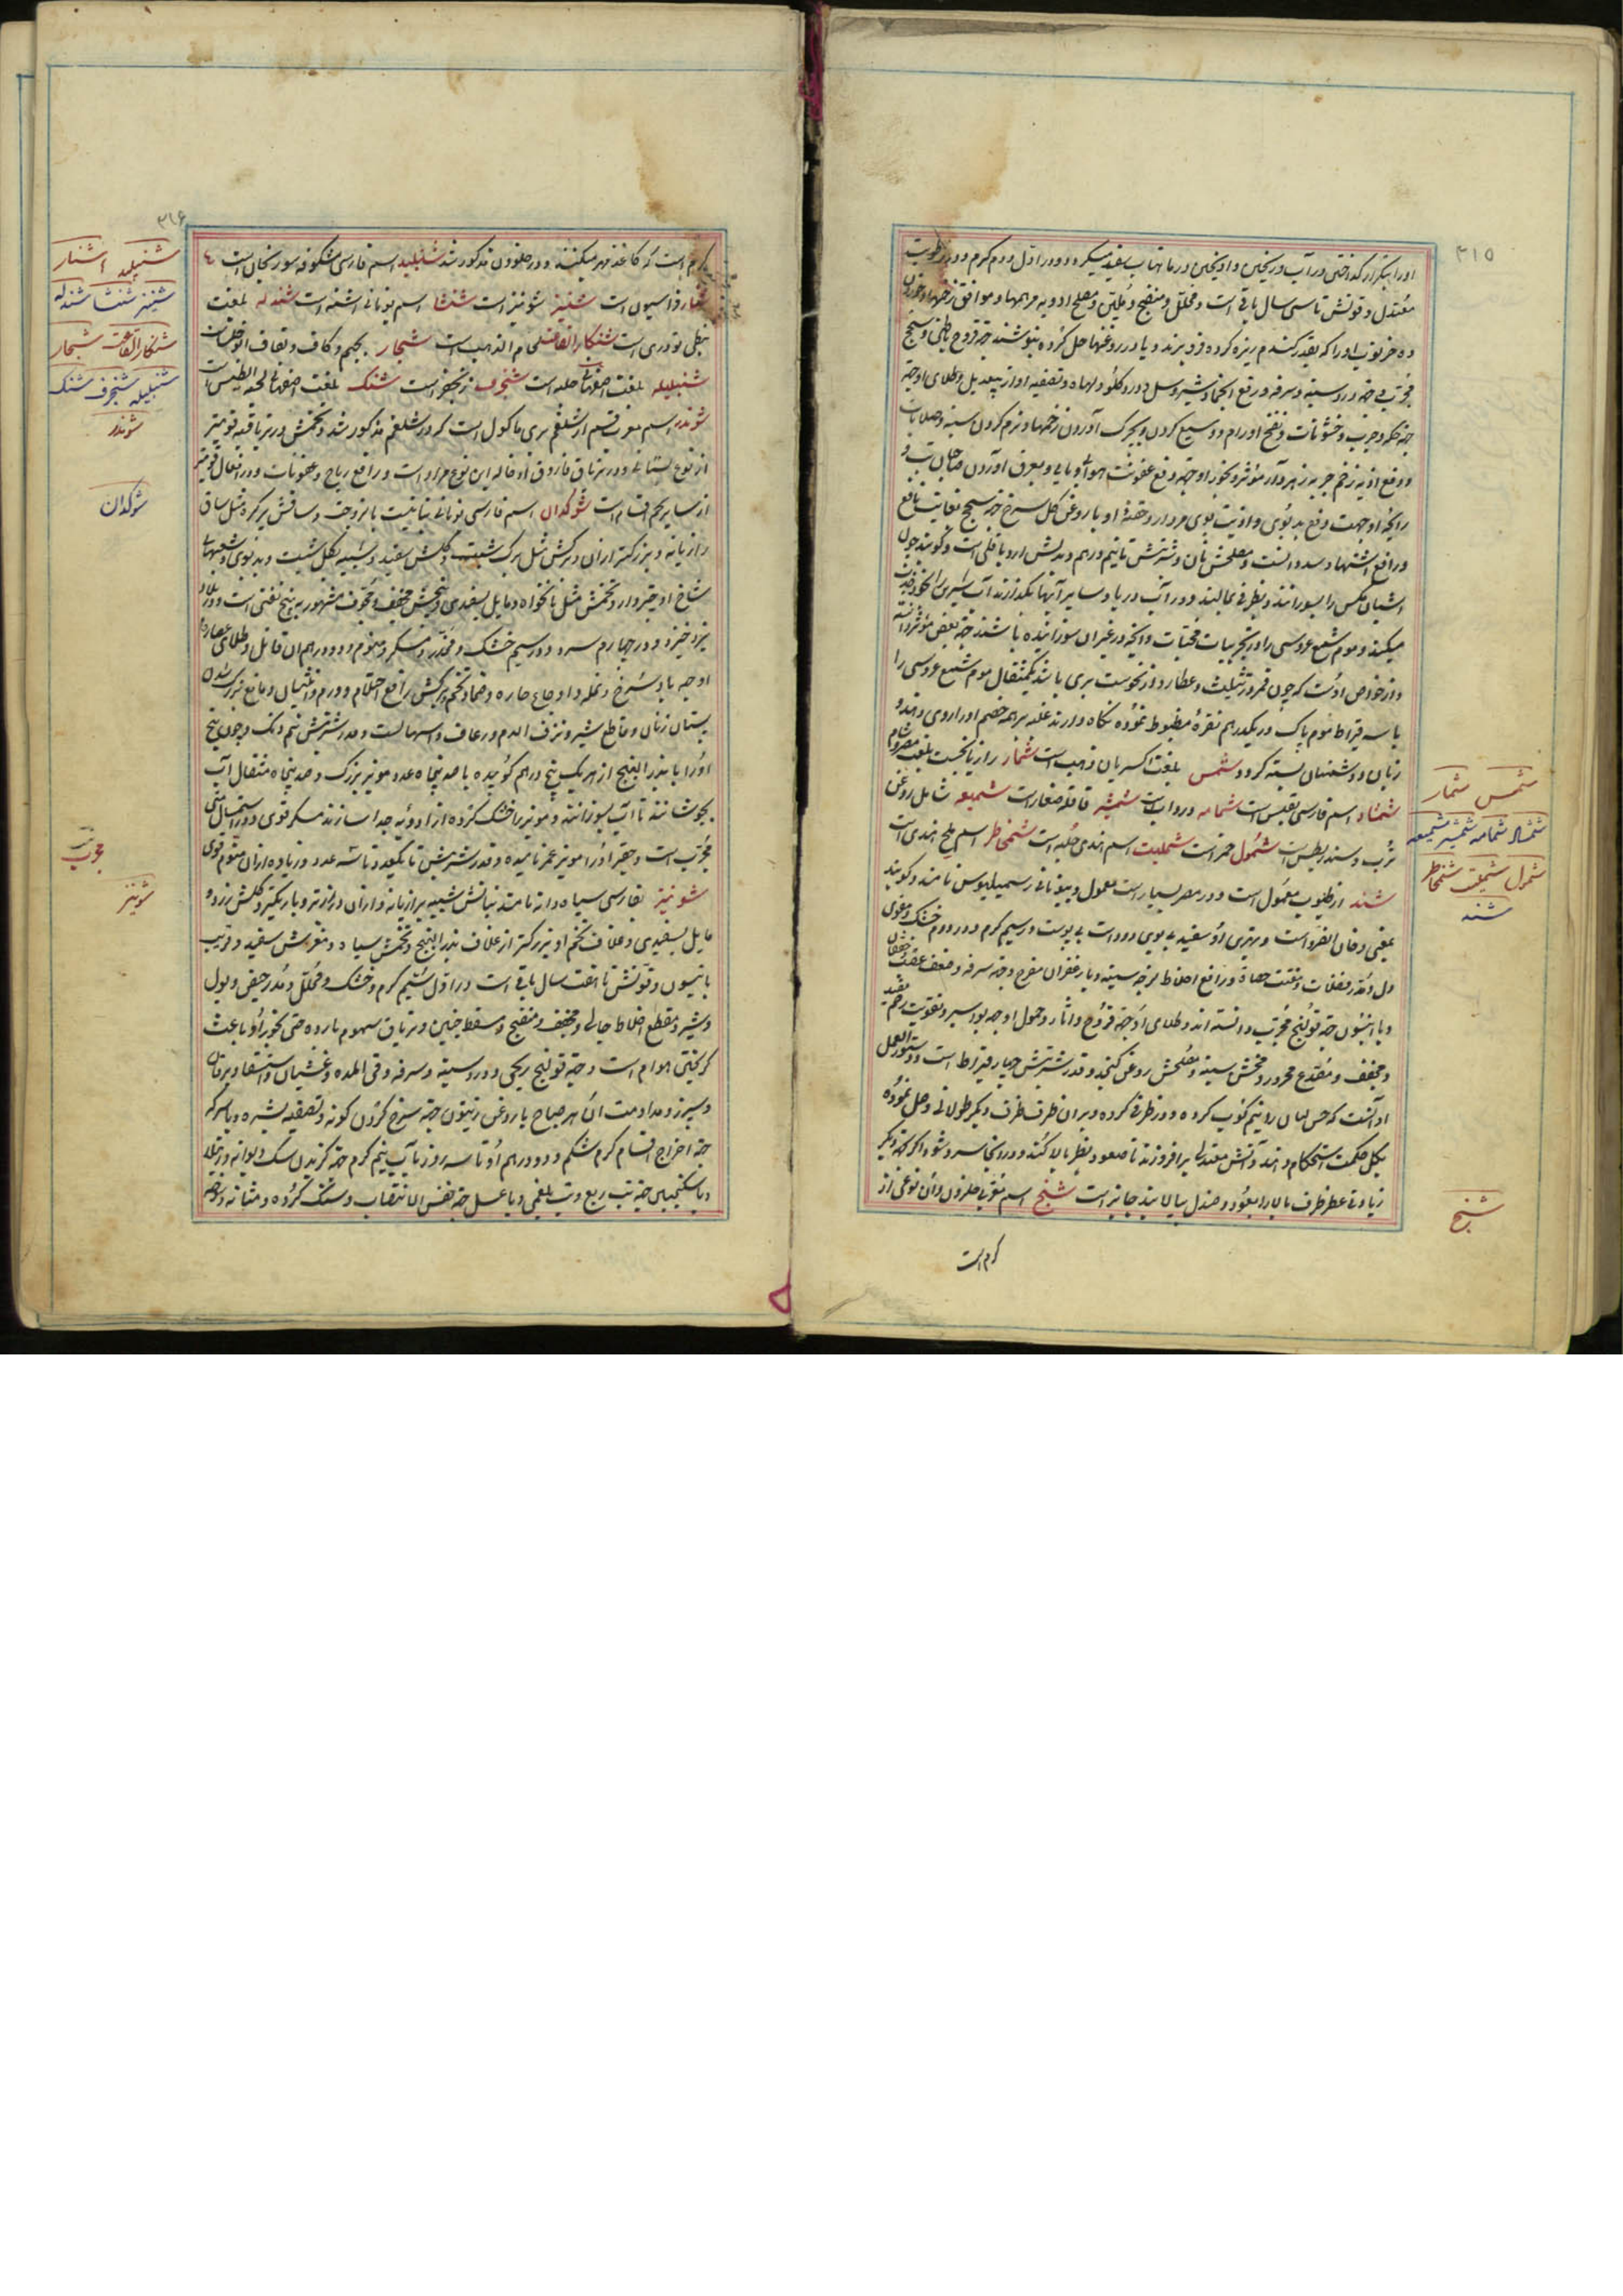 ۳۱۵
اورا بتکرار گداختن در آب و ریختن و آویختن در ماهتاب سفید میگردد و در اول دوم گرم و در رطوبت
معتدل و قوتش تا سی سال باقیست و محلل و منضج و ملین و مصلح ادویه مرهمها و موافق زخمها و خوردن
ده خرنوب اورا که بقدر گندم ریزه کرده فرو برند و یا در روغنها حل کرده بنوشند جهة قروح باطنی و سحج
مجرب و جهة درد سینه و سرفه و رفع انجماد شیر و سل و درد گلو و لهاة و تصفیه آواز بیعدیل و طلای او جهة
جهة حکه و جرب و خشونات و نضج اورام و وسیع کردن و بچرک آوردن زخمها و نرم کردن سینه و صلابات
و دفع اذیه زخم حربه زهردار مؤثر و بخور او جهة دفع عفونت هوای وبایی و بعرق آوردن صاحبان تب و
رایحه او جهت دفع بدبویی و اذیت بوی مردار و حقنه او با روغن گل سرخ جهة سحج بغایت نافع
و رافع اشتها و سدد است و مصلحش نان و شربتش تا نیم درهم و بدلش آرد باقلی است و گویند چون
آشیان مگس را بسوزانند و بظرفی بمالند و در آب دریا و سایر آبها بگذارند آب شیرین را بخود جذب
میکند و موم شمع عروسی را در تجربیات محبت و آنچه در غیر آن سوزانیده باشند جهة بعضی مؤثر دانسته
و از خواص اوست که چون قمر در تثلیث و عطارد و از نحوست بری باشد یکمثقال موم شمع عروسی را
با سه قیراط موم پاک در یکدرهم نقره مضبوط نموده نگاه دارند غلبه بر همه خصم آورد از وی و بند
زبان و دشمنان بسته گردد شمس بلغت اکسیریان ذهب است شمار رازیانجست بلغت مصر و شام
شمشاد اسم فارسی بقس است شمامه درواب است شمشیر قاقله صغار است شمیعه شامل روغن
ترب و سندریطس است شمول خمر است شملیت اسم هندی حلبه است شمخاطر اسم ملح هندی است
شند از طیوب معمول است و در مصر بسیار است معمول و بیونانی سمیلیوس نامند و گویند
بمعنی دخان الضرو است و بهتری او سفید بی بوی دود است بی پوست و در سیم گرم و در دوم خشک و مقوی
دل و مدر فضلات و مفتت حصاة و رافع اخلاط لزجه سینه و با زعفران مفرح و جهة سرفه و ضعف معده و خفقان
و با انیسون جهة قولنج مجرب دانسته اند و طلای او جهة قروح و آثار و حمول او جهة بواسیر و تقویت رحم مفید
و مجفف و مصدع محرور و مخشن سینه و مصلحش روغن کنجد و قدر شربتش چهار قیراط است و دستور العمل
او آنست که حسن لبان را نیم کوب کرده و در ظرفی کرده و بر آن ظرف ظرف دیگر طولانی وصل نموده
بگل حکمت استحکام دهند و آتش معتدل برافروزند تا صعود بظرف بالا کند و در آنجا سرد شود اگر جهة دیگر
زیادتی عطر ظرف بالا را بعود و صندل بیالایند جایز است شنج اسم نوعی حلزون و آن نوعی از
کرم است
شمس شمار
شمشاد شمامه شمشیر شمیعه
شمول شملیت شمخاطر
شند
شنج
۳۱۶
کرم است که کاغذ مهره میکنند و در حلزون مذکور شد شنبلید اسم فارسی شکوفه سورنجان است
شنار فراسیون است شنیز شونیز است شنشا اسم یونانی اشنه است شندله بلغت
نبطی تودری است شنکار القاقلی خام الذهب است شنجار بجیم و کاف و بقاف ابوخلسا است
شنبلیله بلغت اصفهان حلبه است شنجرف زنجفر است شنک بلغت اصفهان لحیة التیس است
شوندر اسم معرب قسم از شلغم بری ماکول است که در شلغم مذکور شد و تخمش در تریاقیه قویتر
از نوع بستانی و در تریاق فاروق ادخاله این نوع مراد است و رافع ریاح و عفونات و در افعال قویتر
از سایر تخم اقسام است شوکدان اسم فارسی قونانی نباتیست با زوجت و ساقش پر گره مثل ساق
رازیانه و بزرکتر از آن و برگش مثل برگ شبت و گلش سفید و شبیه بگل شبت و بدبوی و شعبهای
شاخ او خیزدار و تخمش مثل نانخواه و مایل بسفیدی و بیخش مخفف و مجوف مشهور به بیخ تفتی است و در بلاد
یزد خیزد و در چهارم سرد و در سیم خشک و مخدر و مسکر و منوم و دو درهم آن قاتل و طلای عصاره
او جهة باد سرخ و نمله و اوجاع حاره و ضماد تخم و برگش رافع احتلام و ورم انثیان و مانع بزرگ شدن
پستان زنان و قاطع شیر و نزف الدم و رعاف و اسهالست و قدر شربتش نیم دانگ و چون بیخ
او را با بذر البنج از هر یک پنج درهم کوبیده با صد پنجاه عدد مویز بزرگ و صد پنجاه مثقال آب
بجوشانند تا آب بسوزد و مویز را خشک کرده از ادویه جدا سازند مسکر قوی و در استعمال
مجرب است و حقیر او را مویز عمر نامیده و قدر شربتش تا یکعدد تا سه عدد و زیاده از آن منوم قوی
شونیز بفارسی سیاه دانه نامند نباتش شبیه برازیانه و از آن درازتر و باریکتر و گلش زرد و
مایل بسفیدی و غلاف تخم او بزرکتر از غلاف بذر البنج و تخمش سیاه و مغزش سفید و قریب
بانیسون و قوتش تا هفت سال باقی است در اول سیم گرم و خشک و محلل و مدر حیض و بول
و شیر و مقطع اخلاط جالی و مجفف و منضج و مسقط جنین و تریاق سموم بارده حتی بخور او باعث
گریختن هوام است و جهة قولنج ریحی و درد سینه و سرفه و قی المده و غشیان و استسقا و یرقان
و سپرز و مداومت آن هر صباح با روغن زیتون جهة سرخ کردن گونه و تصفیه بشره و با سرکه
جهة اخراج اقسام کرم شکم و دو درهم او تا سه روز با آب نیم گرم جهة گزیدن سگ دیوانه و رتیلا
و با سکنجبین جهة تب ربع و تب بلغمی و با عسل جهة نفس الانتصاب و سنگ گرده و مثانه
شنبلید شنار
شنیز شنشا شندله
شنکار القاقلی شنجار
شنبلیله شنجرف شنک
شوندر
شوکدان
مجرب
شونیز